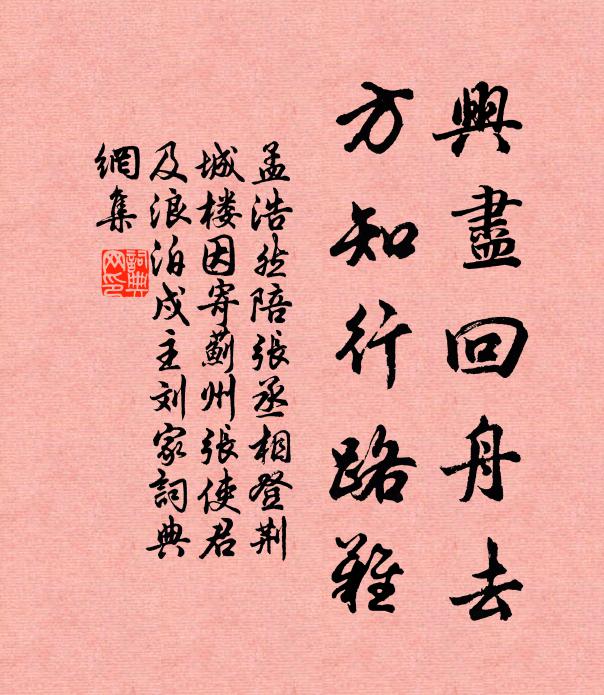 興盡回舟去
方知行路難
孟浩然陪張丞相登荆
城楼因寄薊州張使君
及浪泊戍主刘家詞典
網集
詞典
网印